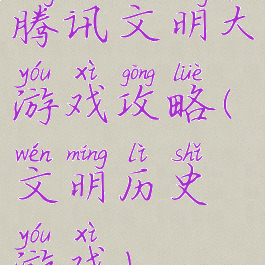 腾讯文明大
yóu xì gōng lüè
游戏攻略(
wén míng lì shǐ
文明历史
yóu xì
游戏)